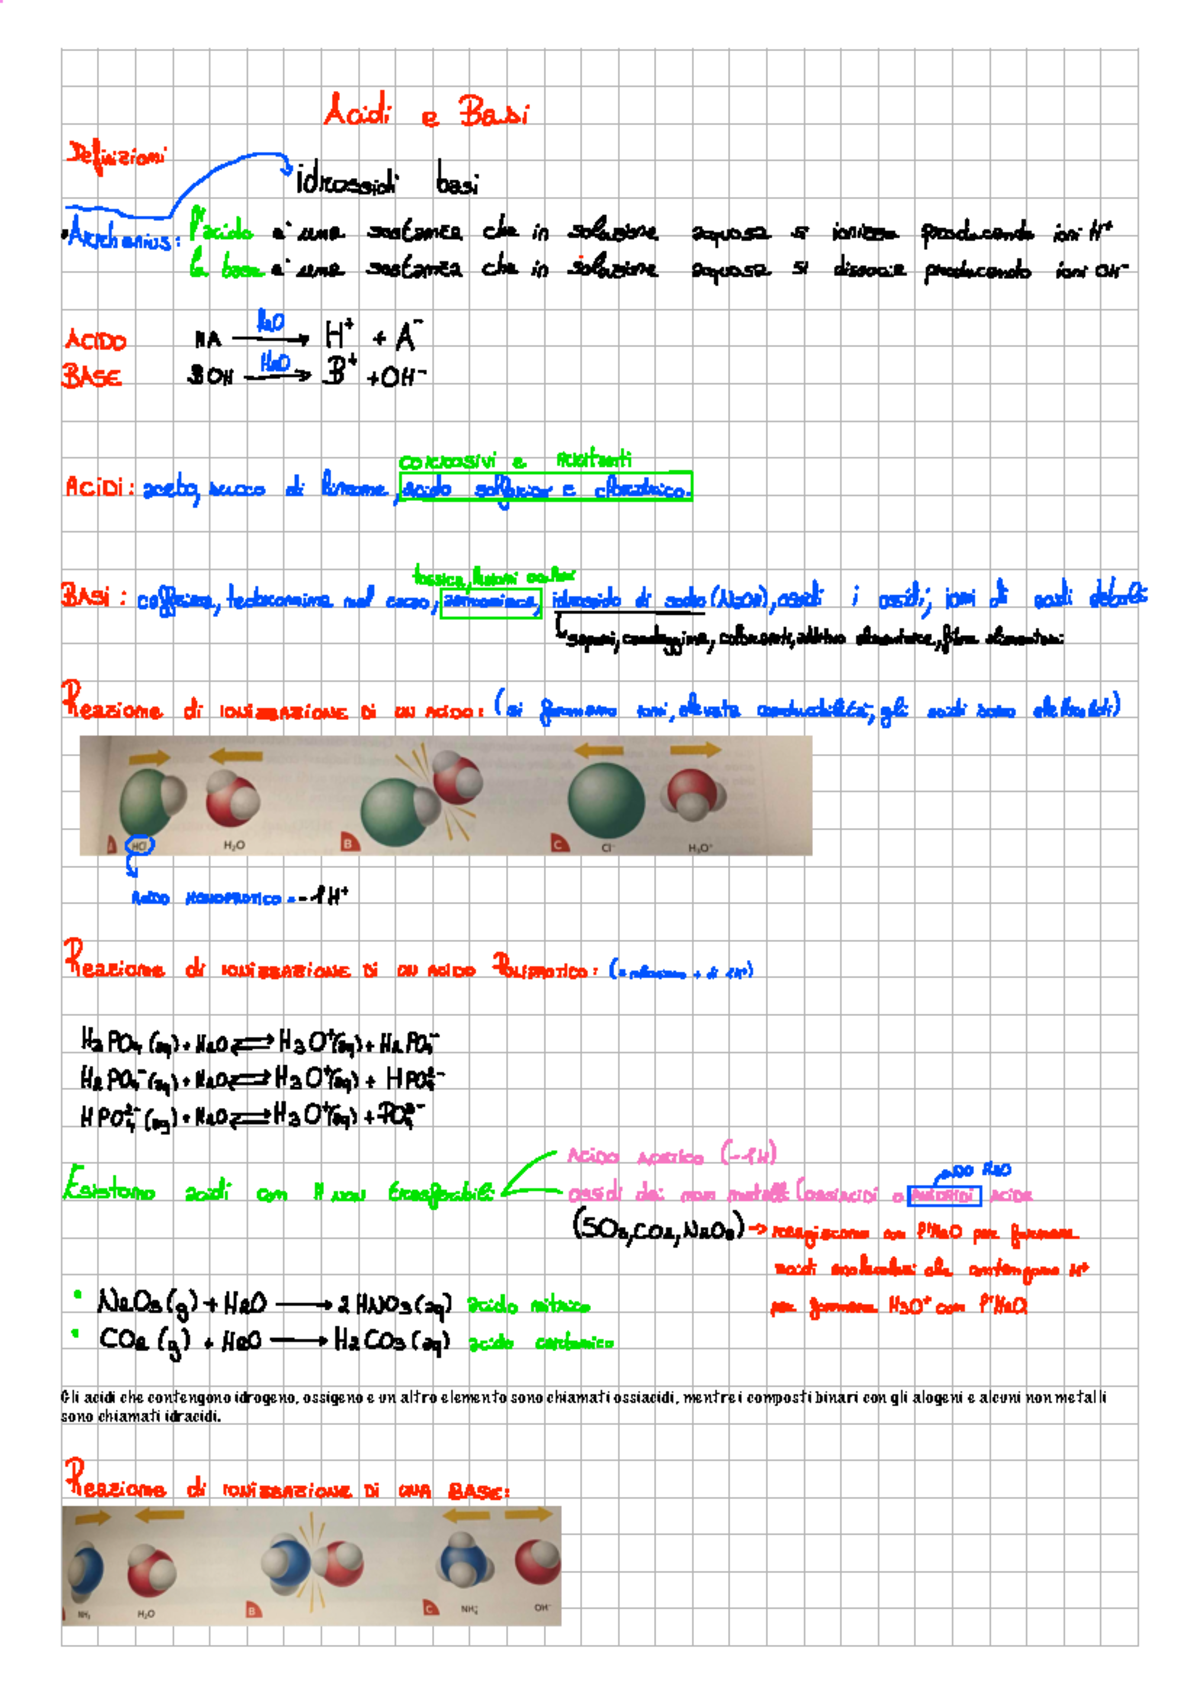 Acidi e Basi
Definizioni
idrossidi basi
Arrhenius: l'acido e' una sostanza che in soluzione acquosa si ionizza producendo ioni H⁺
la base e' una sostanza che in soluzione acquosa si dissocia producendo ioni OH⁻
ACIDO HA —H2O→ H⁺ + A⁻
BASE BOH —H2O→ B⁺ + OH⁻
corrosivi e irritanti
ACIDI: aceto, succo di limone, acido solforico e cloridrico.
tossica, lesioni oculari
BASI: caffeina, teobromina nel cacao, ammoniaca, idrossido di sodio (NaOH), ossidi i ossidi, ioni di acidi deboli
saponi, candeggina, coloranti, additivo alimentare, fibre alimentari
Reazione di IONIZZAZIONE DI UN ACIDO: (si formano ioni, elevata conducibilità, gli acidi sono elettroliti)
HCl H₂O B C Cl⁻ H₃O⁺
ACIDO MONOPROTICO = -1H⁺
Reazione di IONIZZAZIONE DI UN ACIDO POLIPROTICO: (= + di 1H⁺)
H3PO4 (aq) + H2O ⇌ H3O⁺(aq) + H2PO4⁻
H2PO4⁻ (aq) + H2O ⇌ H3O⁺(aq) + HPO4²⁻
HPO4²⁻ (aq) + H2O ⇌ H3O⁺(aq) + PO4³⁻
Acido Acetico (-1H)
senza H2O
Esistono acidi con H non trasferibili ossidi dei non metalli (ossiacidi o ANIDRIDI ACIDE
(SO3, CO2, N2O5) → reagiscono con l'H2O per formare
acidi molecolari che contengono H⁺
per formare H3O⁺ con l'H2O
• N2O5 (g) + H2O → 2 HNO3 (aq) acido nitrico
• CO2 (g) + H2O → H2CO3 (aq) acido carbonico
Gli acidi che contengono idrogeno, ossigeno e un altro elemento sono chiamati ossiacidi, mentre i composti binari con gli alogeni e alcuni non metalli
sono chiamati idracidi.
Reazione di IONIZZAZIONE DI UNA BASE:
NH₃ H₂O B C NH₄⁺ OH⁻